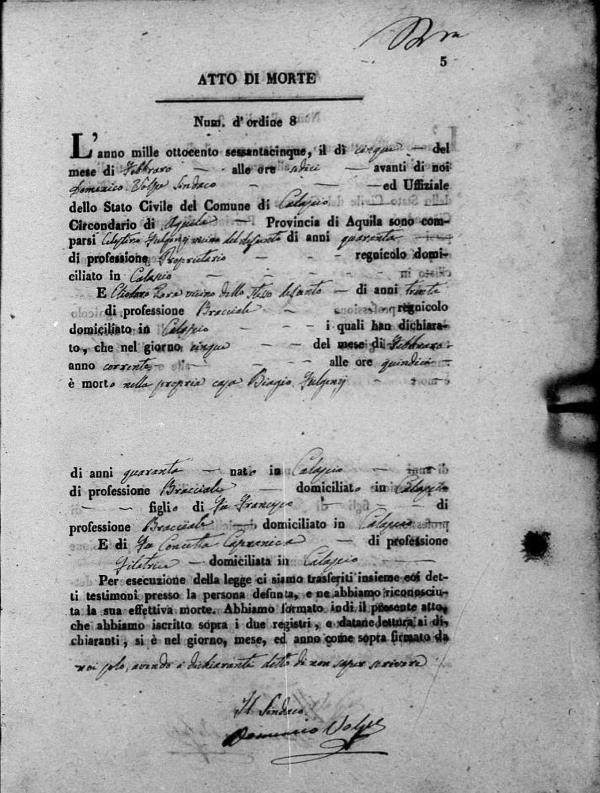 5
ATTO DI MORTE
Num. d'ordine 8
L'anno mille ottocento sessantacinque, il dì cinque del
mese di Febbraro alle ore sedici avanti di noi
Domenico Volpe Sindaco ed Uffiziale
dello Stato Civile del Comune di Calascio
Circondario di Aquila Provincia di Aquila sono com-
parsi Celestino Fulgenzj vicino del defunto di anni quaranta
di professione Proprietario regnicolo domi-
ciliato in Calascio
E vicino dello stesso defunto di anni trenta
di professione Bracciale regnicolo
domiciliato in Calascio i quali han dichiara-
to, che nel giorno cinque del mese di Febbraro
anno corrente alle ore quindici
è morto nella propria casa Biagio Fulgenzj
di anni quaranta nato in Calascio
di professione Bracciale domiciliato in Calascio
figlio di fu Francesco di
professione Bracciale domiciliato in Calascio
E di fu Concetta Capranica di professione
Filatrice domiciliata in Calascio
Per esecuzione della legge ci siamo trasferiti insieme coi det-
ti testimoni presso la persona defunta, e ne abbiamo riconosciu-
ta la sua effettiva morte. Abbiamo formato indi il presente atto,
che abbiamo iscritto sopra i due registri, e datane lettura ai di-
chiaranti, si è nel giorno, mese, ed anno come sopra firmato da
noi solo, avendo i dichiaranti detto di non saper scrivere
Il Sindaco
Domenico Volpe